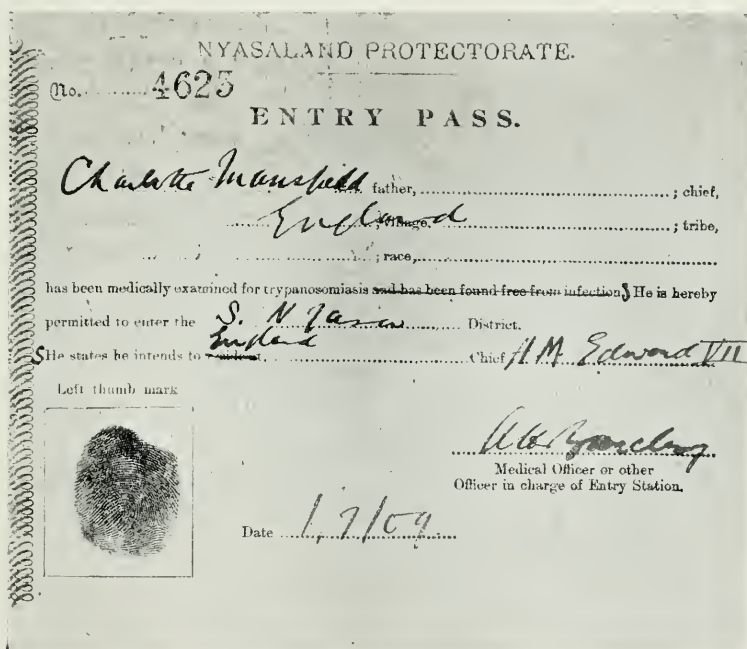 NYASALAND PROTECTORATE.
No. 4623
ENTRY PASS.
Charlotte Mansfield father, ; chief,
England ; village, ; tribe,
; race,
has been medically examined for trypanosomiasis and has been found free from infection; SHe is hereby
permitted to enter the S. Nyasa District.
SHe states he intends to England Chief H.M. Edward VII
Left thumb mark
Medical Officer or other
Officer in charge of Entry Station.
Date 1/7/09